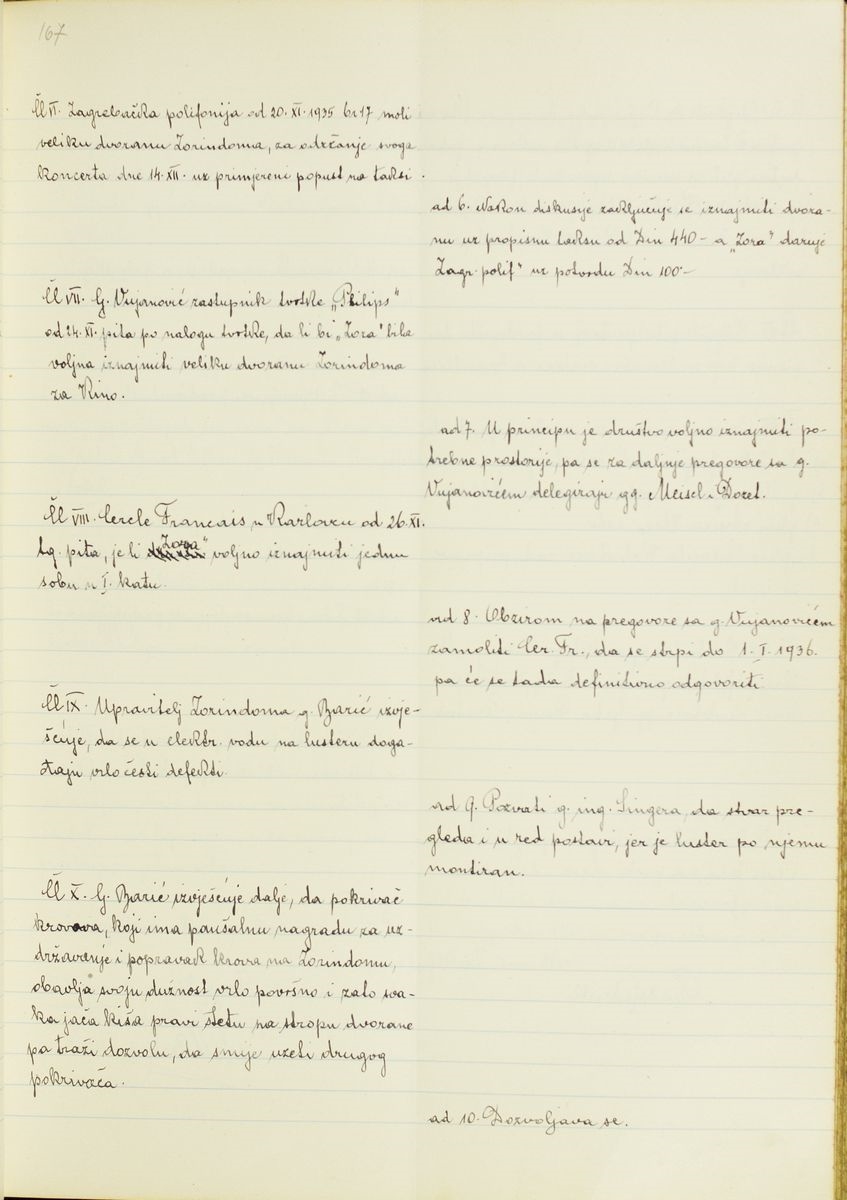 167
Čl VI. Zagrebačka polifonija od 20. XI. 1935 br 17 moli
veliku dvoranu Zorindoma, za održanje svoga
koncerta dne 14. XII. uz primjereni popust na taksi.
ad 6. Nakon diskusije zaključuje se iznajmiti dvora-
nu uz propisnu taksu od Din 440- a „Zora" daruje
Zagr. polif" uz potvrdu Din 100-
Čl VII. G. Vujanović zastupnik tvrtke „Philips"
od 24. XI. pita po nalogu tvrtke, da li bi „Zora" bila
voljna iznajmiti veliku dvoranu Zorindoma
za Kino.
ad 7. U principu je društvo voljno iznajmiti po-
trebne prostorije, pa se za daljnje pregovore sa g.
Vujanovićem delegiraju gg. Meisel i Dozet.
Čl VIII. Cercle Francais u Karlovcu od 26. XI.
tg. pita, je li „Zora" voljno iznajmiti jednu
sobu u I. katu.
ad 8. Obzirom na pregovore sa g. Vujanovićem
zamoliti Cer. Fr., da se strpi do 1. I. 1936.
pa će se tada definitivno odgovoriti.
Čl IX. Upravitelj Zorindoma g. Barić izvje-
šćuje, da se u elektr. vodu na lusteru doga-
đaju vrlo česti defekti.
ad 9. Pozvati g. ing. Singera, da stvar pre-
gleda i u red postavi, jer je luster po njemu
montiran.
Čl X. G. Barić izvješćuje dalje, da pokrivač
krovova, koji ima paušalnu nagradu za uz-
državanje i popravak krova na Zorindomu,
obavlja svoju dužnost vrlo površno i zato sva-
ka jača kiša pravi štetu na stropu dvorane
pa traži dozvolu, da smije uzeti drugog
pokrivača.
ad 10. Dozvoljava se.